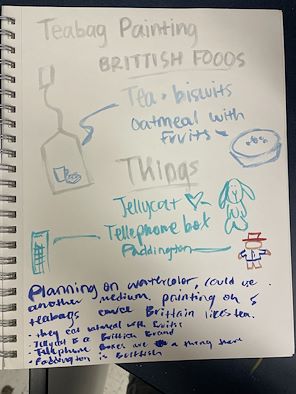 Teabag Painting
BRITTISH FOODS
Tea + biscuits
oatmeal with
fruits
Things
Jellycat
Tellephone box
Paddington
Planning on watercolor, could use
another medium. painting on 5
teabags cause Brittain likes tea.
· they eat oatmeal with fruits
· Jellycat is a Brittish Brand
· Tellephone Boxes are a thing there
· Paddington is Brittish